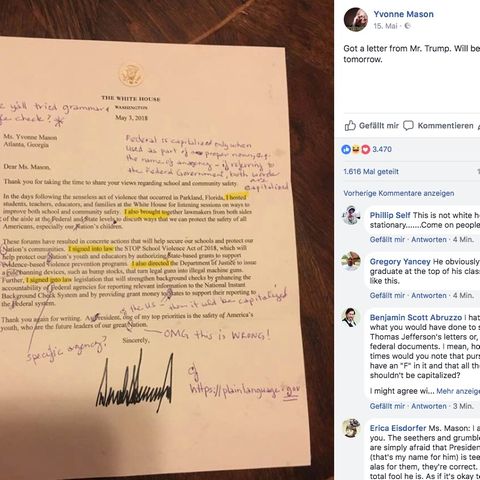 Yvonne Mason
15. Mai
Got a letter from Mr. Trump. Will be
tomorrow.
Gefällt mir
Kommentieren
3.470
1.616 Mal geteilt
Vorherige Kommentare anzeigen
Phillip Self This is not white ho
stationary.......Come on people
Gefällt mir · Antworten · 4 Min.
Gregory Yancey He obviously
graduate at the top of his class
like this.
Gefällt mir · Antworten · 4 Min.
Benjamin Scott Abruzzo I hat
what you would have done to s
Thomas Jefferson's letters or,
federal documents. I mean, ho
times would you note that purs
have an "F" in it and that all th
shouldn't be capitalized?
I might agree wi... Mehr anzeige
Gefällt mir · Antworten · 3 Min.
Erica Eisdorfer Ms. Mason: I a
you. The seethers and grumble
are simply afraid that Presiden
(that's my name for him) is tee
alas for them, they're correct.
total fool he is. As if it's okay t
THE WHITE HOUSE
WASHINGTON
May 3, 2018
y'all tried grammar
check?
Federal is capitalized only when
used as part of a proper noun, e.g.
the name of an agency - if referring to
the Federal Government, both words
are
capitalized
Ms. Yvonne Mason
Atlanta, Georgia
Dear Ms. Mason,
Thank you for taking the time to share your views regarding school and community safety.
In the days following the senseless act of violence that occurred in Parkland, Florida, I hosted
students, teachers, educators, and families at the White House for listening sessions on ways to
improve both school and community safety. I also brought together lawmakers from both sides
of the aisle at the Federal and State levels to discuss ways that we can protect the safety of all
Americans, especially our Nation's children.
These forums have resulted in concrete actions that will help secure our schools and protect our
Nation's communities. I signed into law the STOP School Violence Act of 2018, which will
help protect our Nation's youth and educators by authorizing State-based grants to support
evidence-based violence prevention programs. I also directed the Department of Justice to issue
a rule banning devices, such as bump stocks, that turn legal guns into illegal machine guns.
Further, I signed into law legislation that will strengthen background checks by enhancing the
accountability of Federal agencies for reporting relevant information to the National Instant
Background Check System and by providing grant money to States to support their reporting to
the Federal system.
Thank you again for writing. As President, one of my top priorities is the safety of America's
youth, who are the future leaders of our great Nation.
Sincerely,
OMG this is WRONG!
specific agency?
https://plainlanguage.gov